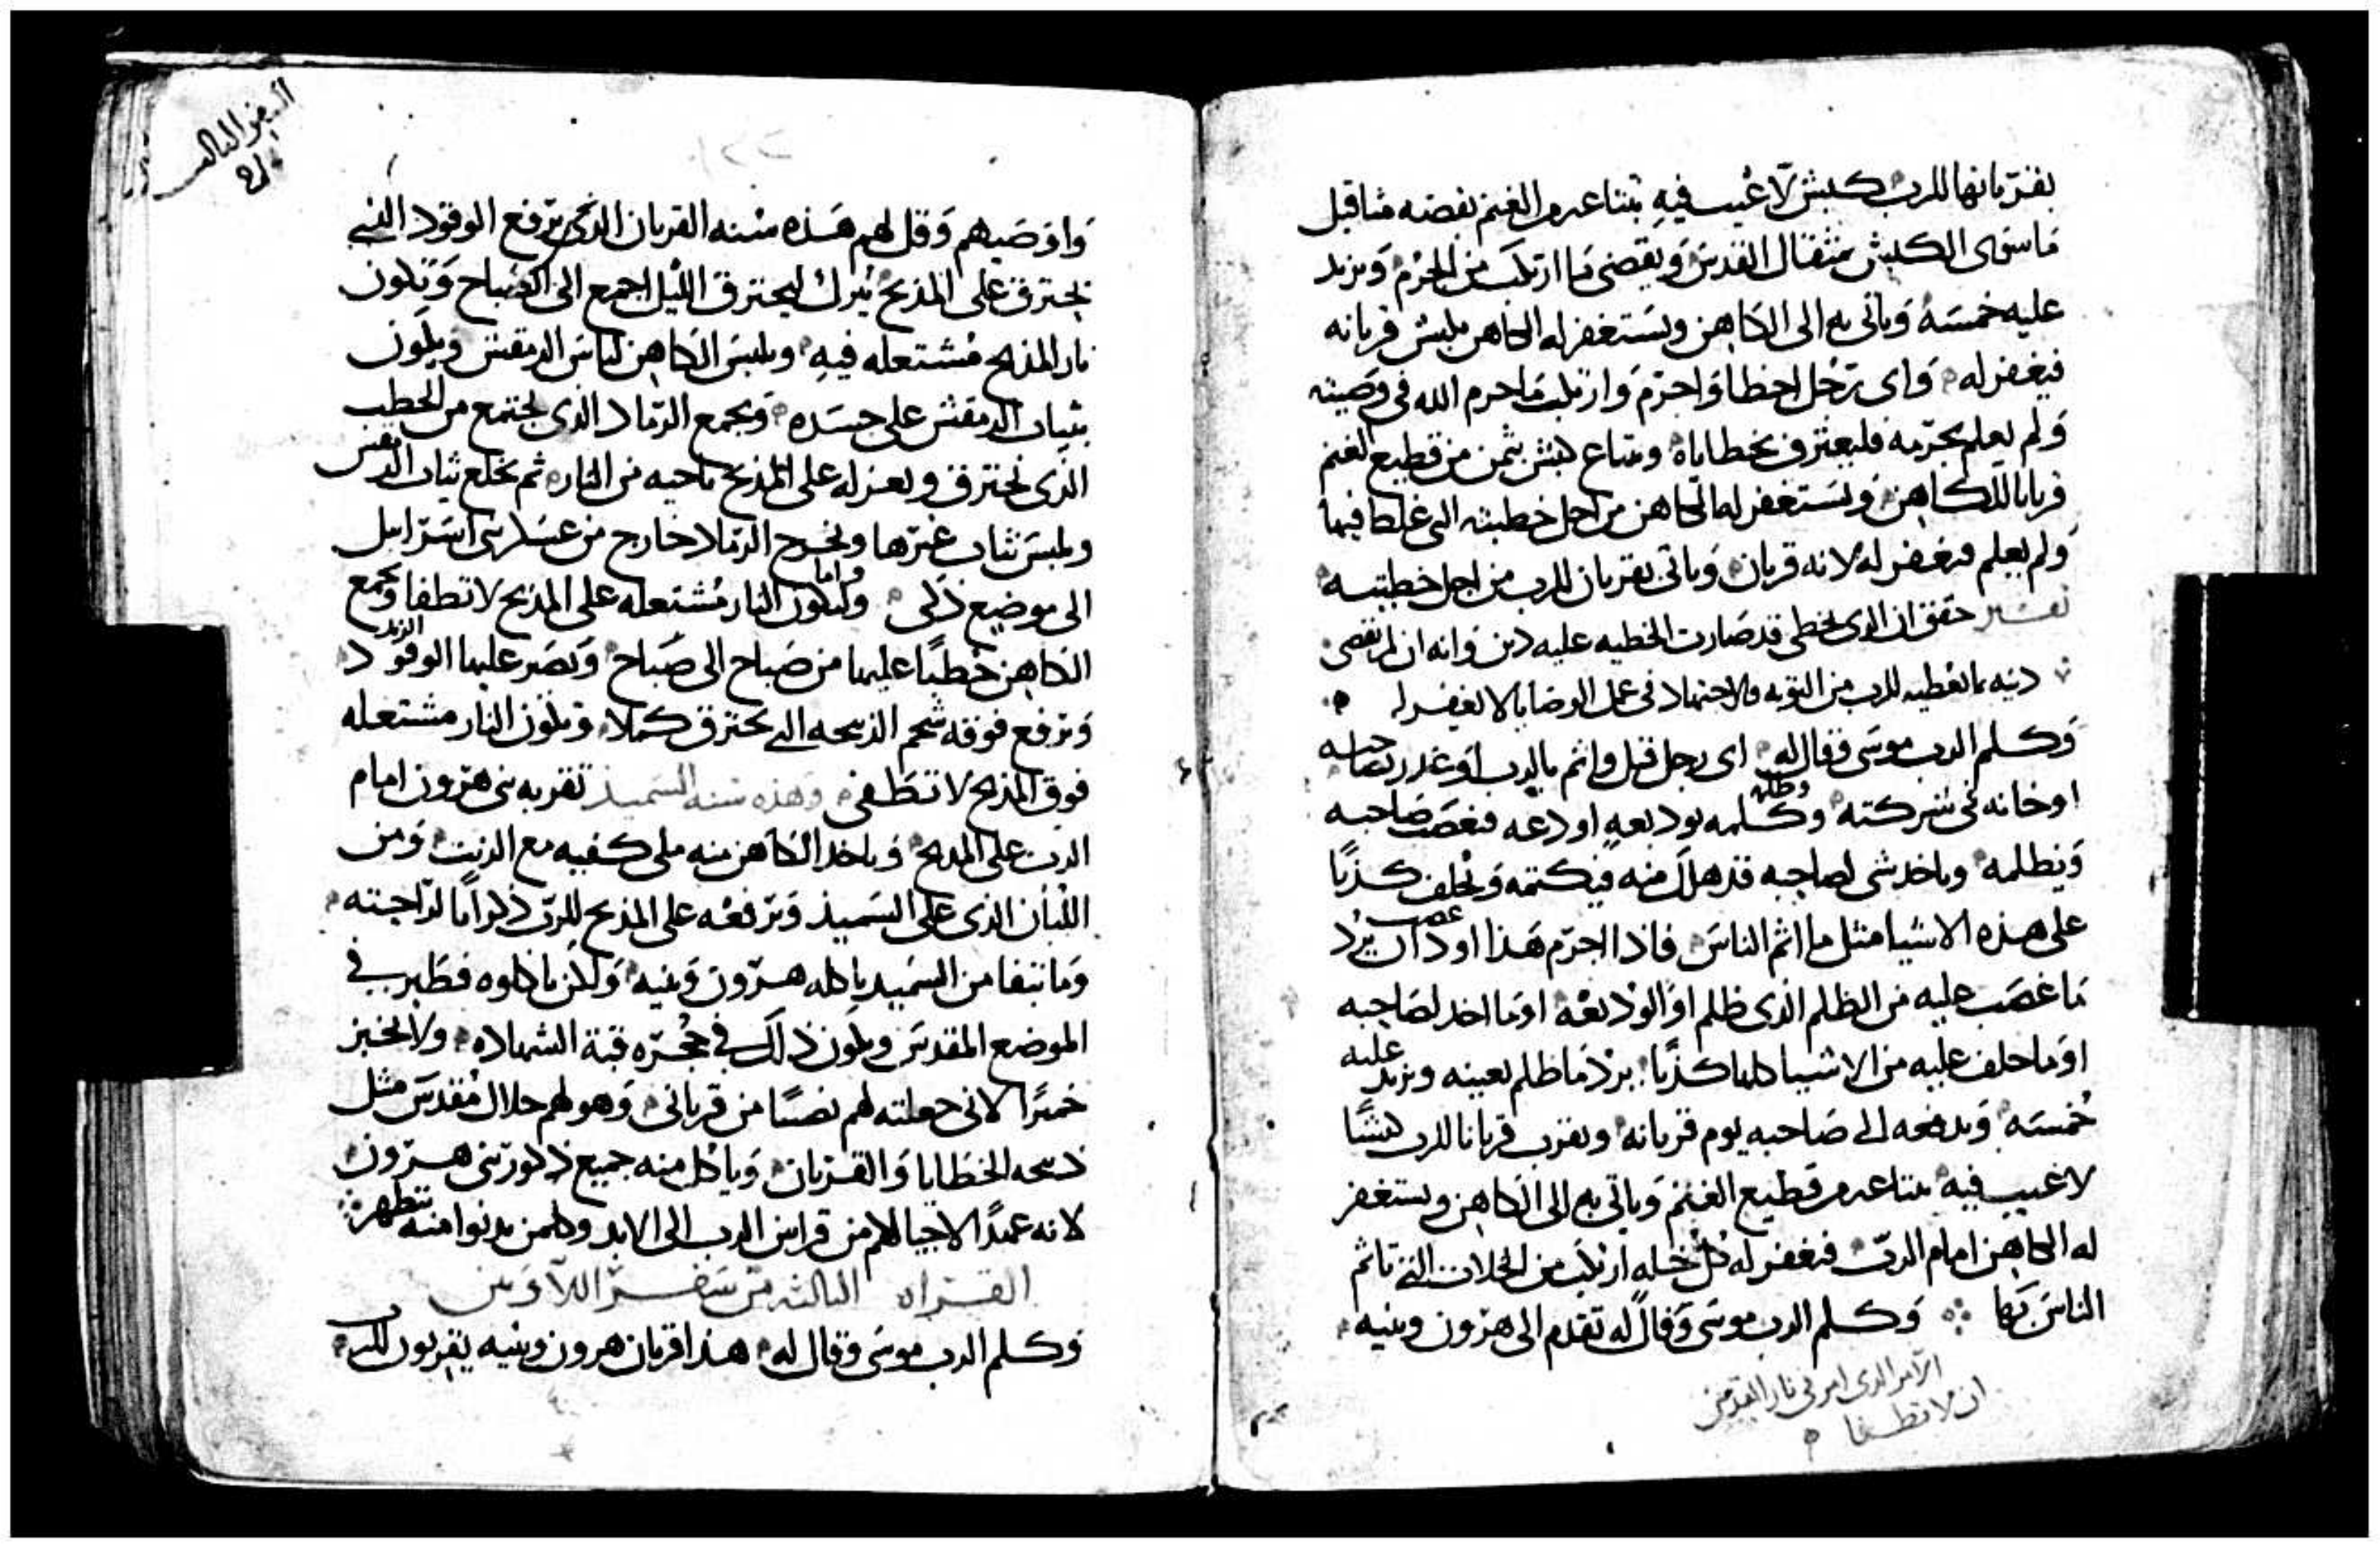 بقربانها للرب كبش لا عيب فيه يبتاعه من الغنم بفضه مثاقيل
ما سوى الكبش بمثقال القدس ويقضي ما ارتكب من الجرم ويزيد
عليه خمسه وياتي به الى الكاهن ويستغفر له الكاهن بكبش قربانه
فيغفر له واي رجل اخطا واجرم وارتكب ما حرم الله في وصيته
ولم يعلم بجرمه فليعترف بخطاياه ويبتاع كبش بثمن من قطيع الغنم
قربانا للكاهن ويستغفر له الكاهن من اجل خطيته التي غلط فيها
ولم يعلم فيغفر له لانه قربان وياتي بقربان للرب من اجل خطيته
تفسير حقق ان الذي يخطي قد صارت الخطيه عليه دين وانه ان لم يقضي
دينه بما يعطيه للرب من التوبه والاجتهاد في عمل الوصايا لا يغفر له
وكلم الرب موسى وقال له اي رجل قتل واثم بالرب او غدر بصاحبه
او خانه في شركته وظلمه وكلمه بوديعه اودعه فيغصب صاحبه
ويظلمه وياخد شي لصاحبه قد هلك منه فيكتمه ويحلف كذبا
على هذه الاشيا مثل ما اثم الناس فاذا اجرم هذا او غصب يرد
ما غصب عليه من الظلم الذي ظلم او الوديعه او ما اخد لصاحبه
او ما حلف عليه من الاشيا كلها كذبا يرد ما ظلم بعينه ويزيد عليه
خمسه ويدفعه الى صاحبه يوم قربانه ويقرب قربانا للرب كبشا
لا عيب فيه يبتاعه من قطيع الغنم وياتي به الى الكاهن ويستغفر
له الكاهن امام الرب فيغفر له كل خله ارتكب من الخلات التي تاثم
الناس بها وكلم الرب موسى وقال له تقدم الى هرون وبنيه
الامر الذي امر في نار القدس
ان لا تطفا
السفر الثالث
واوصيهم وقل لهم هذه سنه القربان الذي يرفع الوقود التي
يحترق على المذبح يترك ليحترق الليل اجمع الى الصباح وتكون
نار المذبح مشتعله فيه ويلبس الكاهن لباس الدمقس ويكون
ثياب الدمقس على جسده ويجمع الرماد الذي يجتمع من الحطب
الذي يحترق ويعزله على المذبح ناحيه من النار ثم يخلع ثياب الدمقس
ويلبس ثياب غيرها ويخرج الرماد خارج من عسكر بني اسرايل
الى موضع ذكي واما ولتكون النار مشتعله على المذبح لا تطفا ويجمع
الكاهن حطبا عليها من صباح الى صباح ويصير عليها الوقود
ويرفع فوقه شحم الذبيحه التي يحترق كملا وتكون النار مشتعله
فوق المذبح لا تنطفي وهذه سنه السميذ تقربه بني هرون امام
الرب على المذبح وياخد الكاهن منه ملي كفيه مع الزيت ومن
اللبان الذي على السميذ ويرفعه على المذبح للرب ذكرانا لراحته
وما تبقا من السميد ياكله هرون وبنيه ولكن ياكلوه فطير في
الموضع المقدس ويكون ذلك في حجره قبة الشهاده ولا يخبز
خميرا لاني جعلته لهم نصيبا من قرباني وهو لهم حلال مقدس مثل
ذبيحه الخطايا والقربان وياكل منه جميع ذكور بني هرون
لانه عهدا لاحيالهم من قرابين الرب الى الابد وكلمن يدنوا منه يتطهر
القراه الثالثه من سفر اللاويين
وكلم الرب موسى وقال له هذا قربان هرون وبنيه يقربون للرب